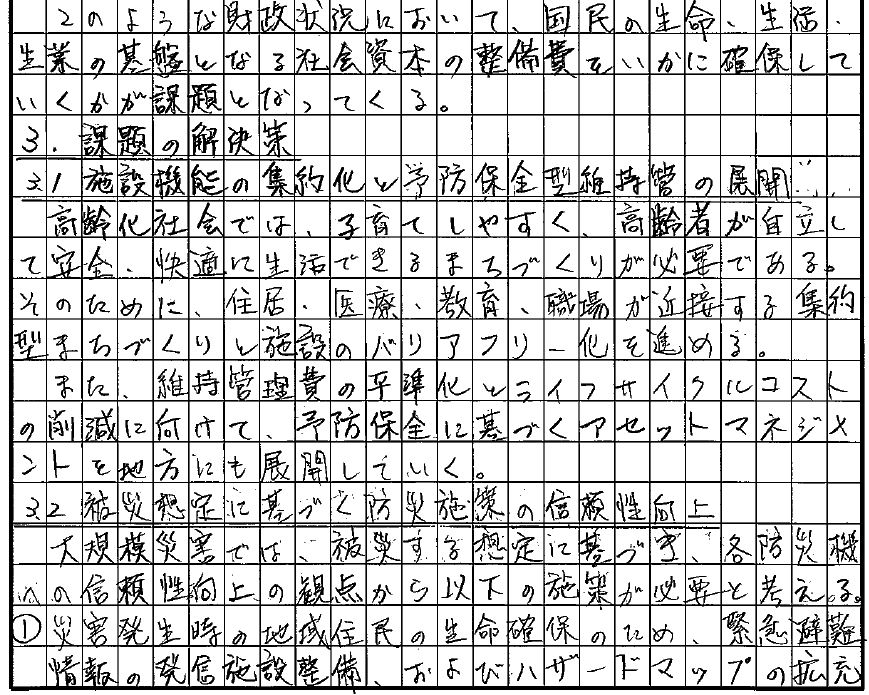 このような財政状況において、国民の生命、生活・
生業の基盤となる社会資本の整備費をいかに確保して
いくかが課題となってくる。
3.課題の解決策
3.1施設機能の集約化と予防保全型維持管の展開
高齢化社会では、子育てしやすく、高齢者が自立し
て安全、快適に生活できるまちづくりが必要である。
そのために、住居・医療、教育、職場が近接する集約
型まちづくりと施設のバリアフリー化を進める。
また、維持管理費の平準化とライフサイクルコスト
の削減に向けて、予防保全に基づくアセットマネジメ
ントを地方にも展開していく。
3.2被災想定に基づく防災施策の信頼性向上
大規模災害では、被災する想定に基づき、各防災機
の信頼性向上の観点から以下の施策が必要と考える。
①災害発生時の地域住民の生命確保のため、緊急避難
情報の発信施設整備、およびハザードマップの拡充